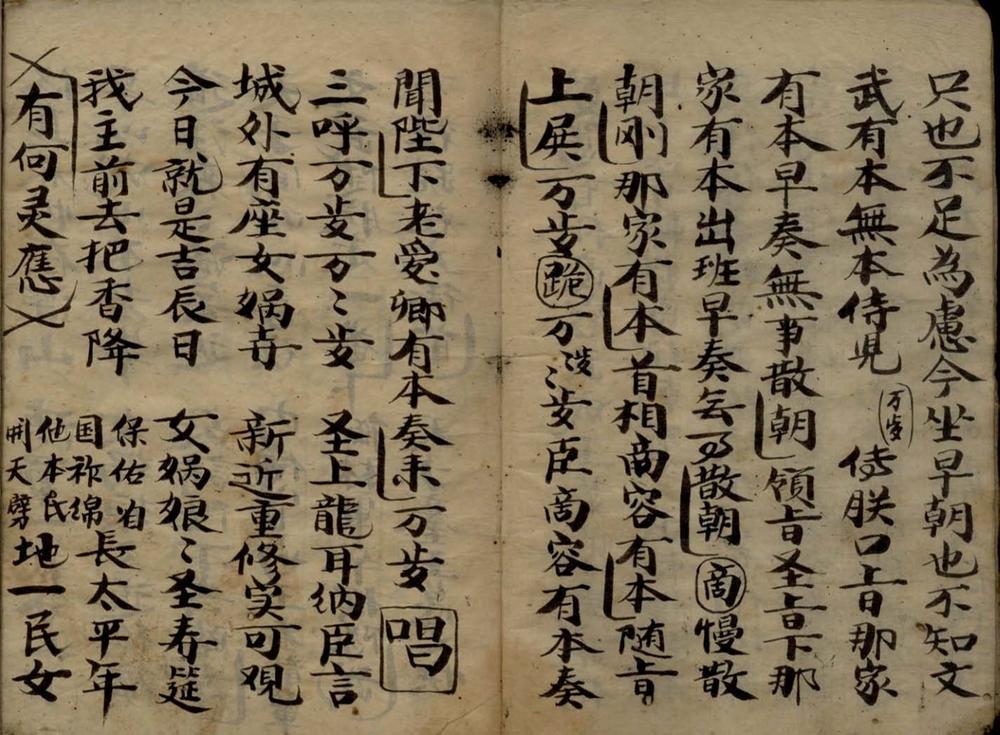 只也不足為慮今坐早朝也不知文
武有本無本侍児 万岁 侍朕口旨那家
有本早奏無事散朝 領旨圣旨下那
家有本出班早奏無事散朝 啇 慢散
朝刚那家有本首相啇容有本随旨
上殿万岁跪万岁万岁臣啇容有本奏
聞陛下老爱卿有本奏来万岁 唱
三呼万岁万〻岁 圣上龍耳纳臣言
城外有座女娲寺 新近重修实可观
今日就是吉辰日 女娲娘〻圣寿筵
我主前去把香降 保佑咱国祚绵長太平年
有何灵應 他本氏開天劈地一民女